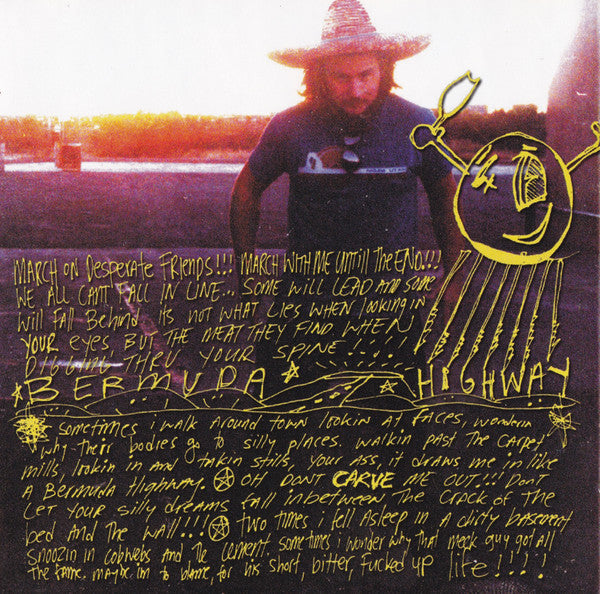 MARCH ON Desperate FRIENDS!!! MARCH WITH ME UNTILL THE END!!!
WE ALL CANT FALL IN LINE... SOME WILL LEAD AND SOME
WILL FALL BEHIND. ITS NOT WHAT LIES WHEN LOOKING IN
YOUR EYES BUT THE MEAT THEY FIND WHEN
DIGGING THRU YOUR SPINE!!!!
BERMUDA HIGHWAY
Sometimes i walk around town lookin At faces, wonderin
why their bodies go to silly places. walkin past the carpet
mills, lookin in and takin stills, your ass, it draws me in like
A Bermuda Highway. OH DONT CARVE ME OUT!!! DONT
LET YOUR Silly dreams fall inbetween THE CRACK OF THE
bed and The WALL!!! Two times i fell Asleep in A dirty basement
snoozin in cobwebs and The cement. sometimes i wonder why that meek guy got All
The fame. maybe im to blame, for his short, bitter, fucked up life!!!!